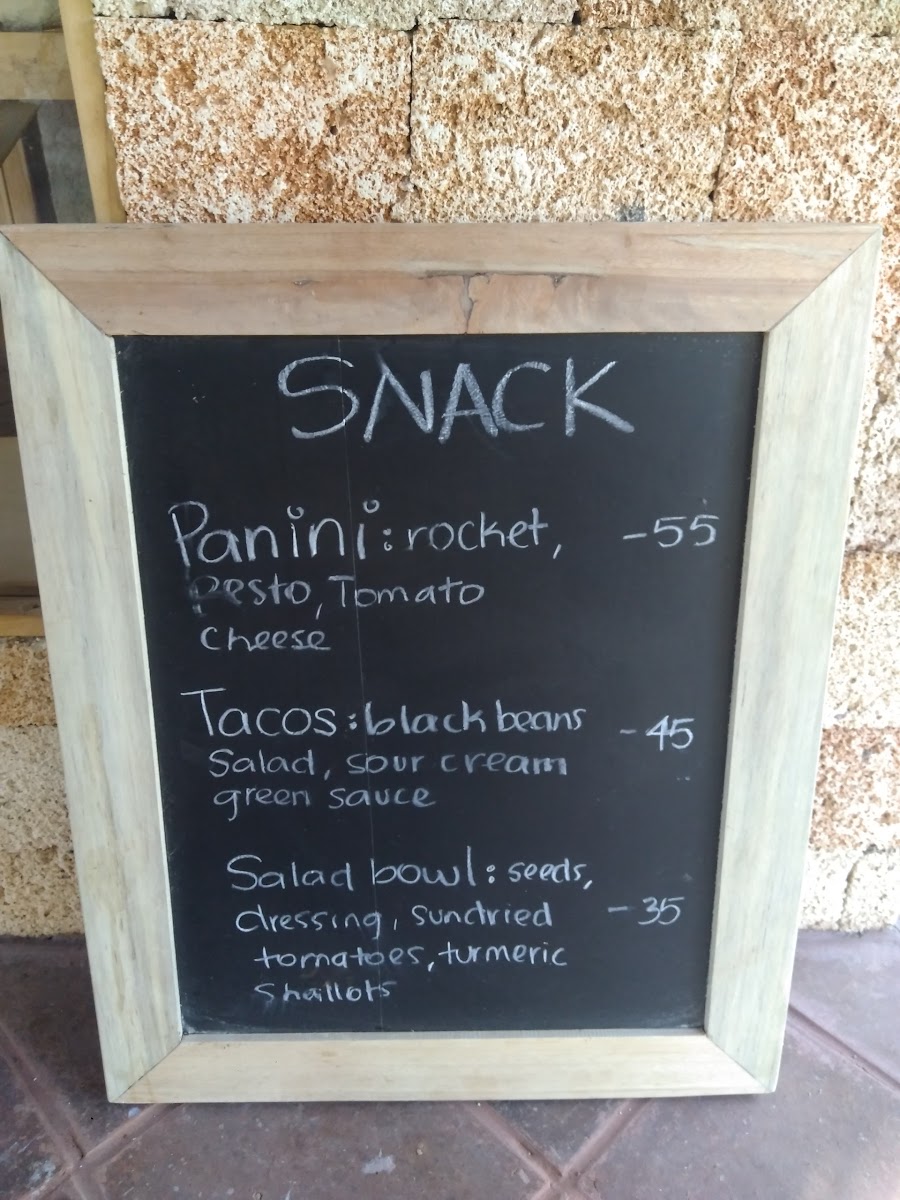 SNACK
Panini: rocket, -55
Pesto, Tomato
cheese
Tacos: black beans -45
Salad, sour cream
green sauce
Salad bowl: seeds,
dressing, sundried -35
tomatoes, turmeric
shallots